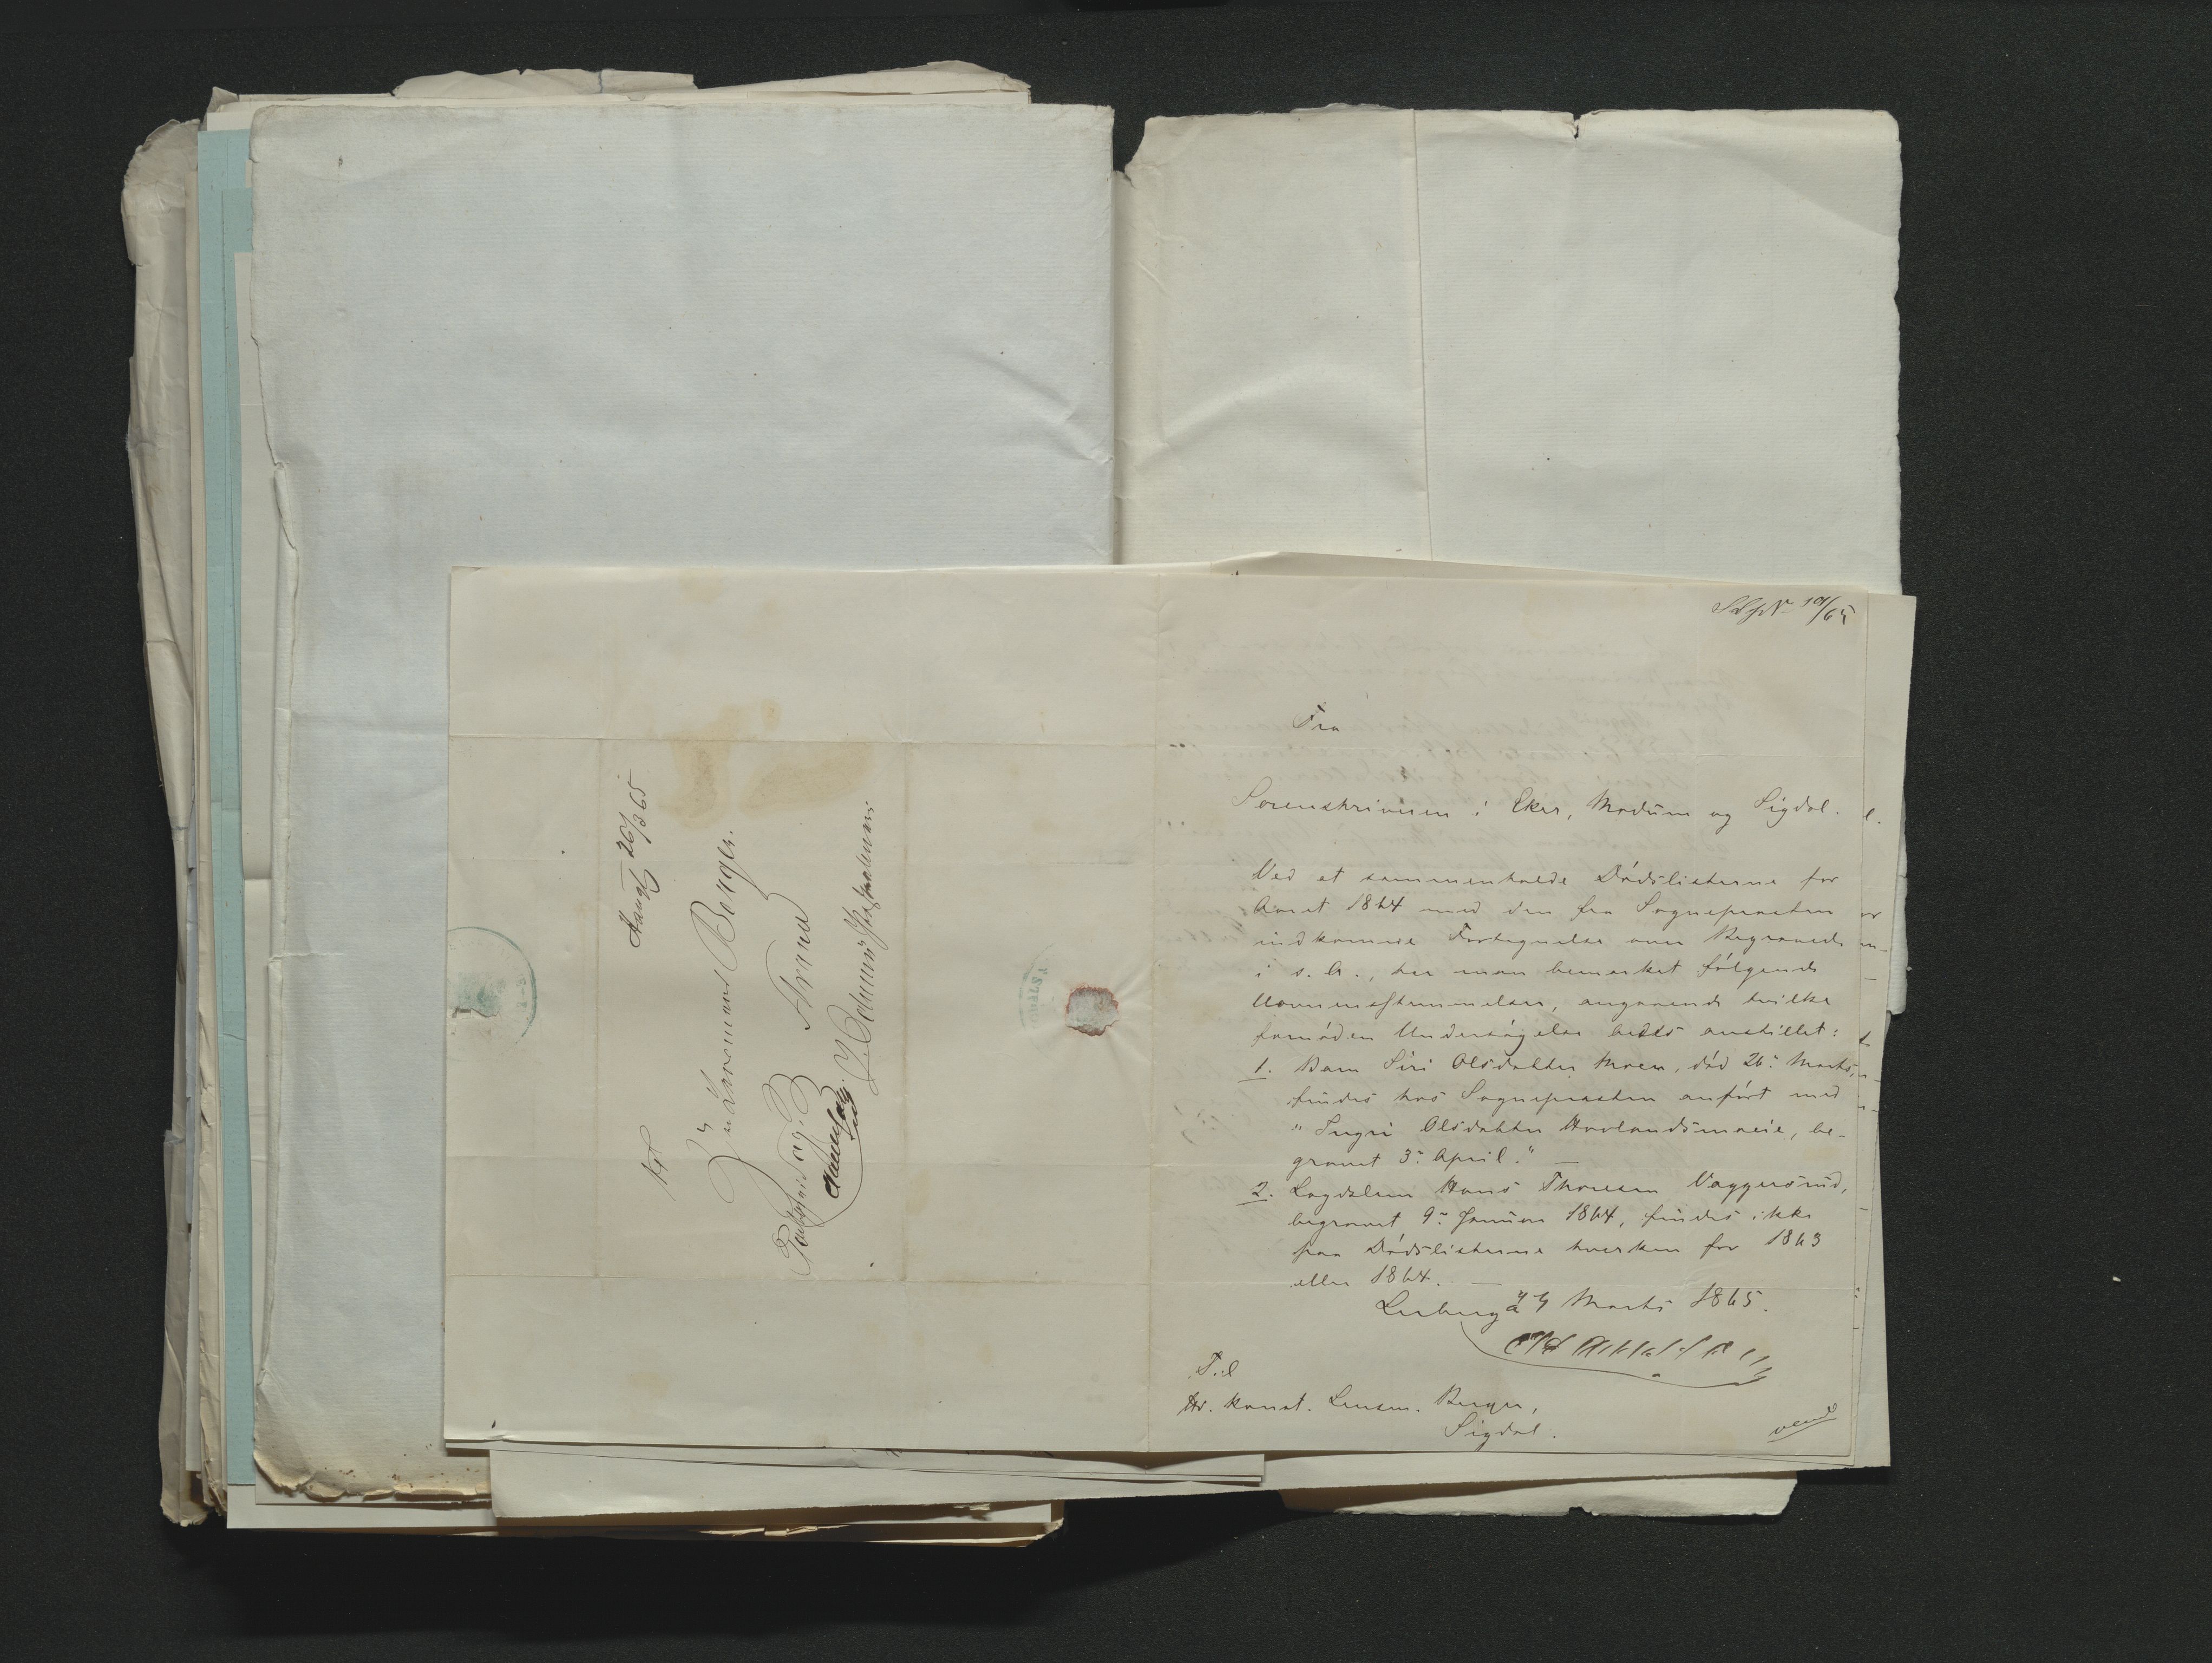 Fra
Sorenskriveren i Eker, Modum og Sigdal.
Ved at sammenholde Dødslisterne for
Aaret 1864 med den fra Sognepræsten
indkomne Fortegnelse over Begravede
i s. A., har man bemærket følgende
Uoverensstemmelser, angaaende hvilke
fornøden Undersøgelse bedes anstillet:
1. Barn Siri Olsdatter Moen, død 26. Marts,
findes hos Sognepræsten anført med
"Ingri Olsdatter Hovlandsmoeie, be-
gravet 3. April." —
2. Lægdslem Hans Thoresen Vaggersrud,
begravet 9. Januar 1864, findes ikke
paa Dødslisterne hverken for 1863
eller 1864. —
Marts 1865.
Til
Hr. konst. Lensm. Berger,
Sigdal.
vend
26/3 65
Lensmand Berger.